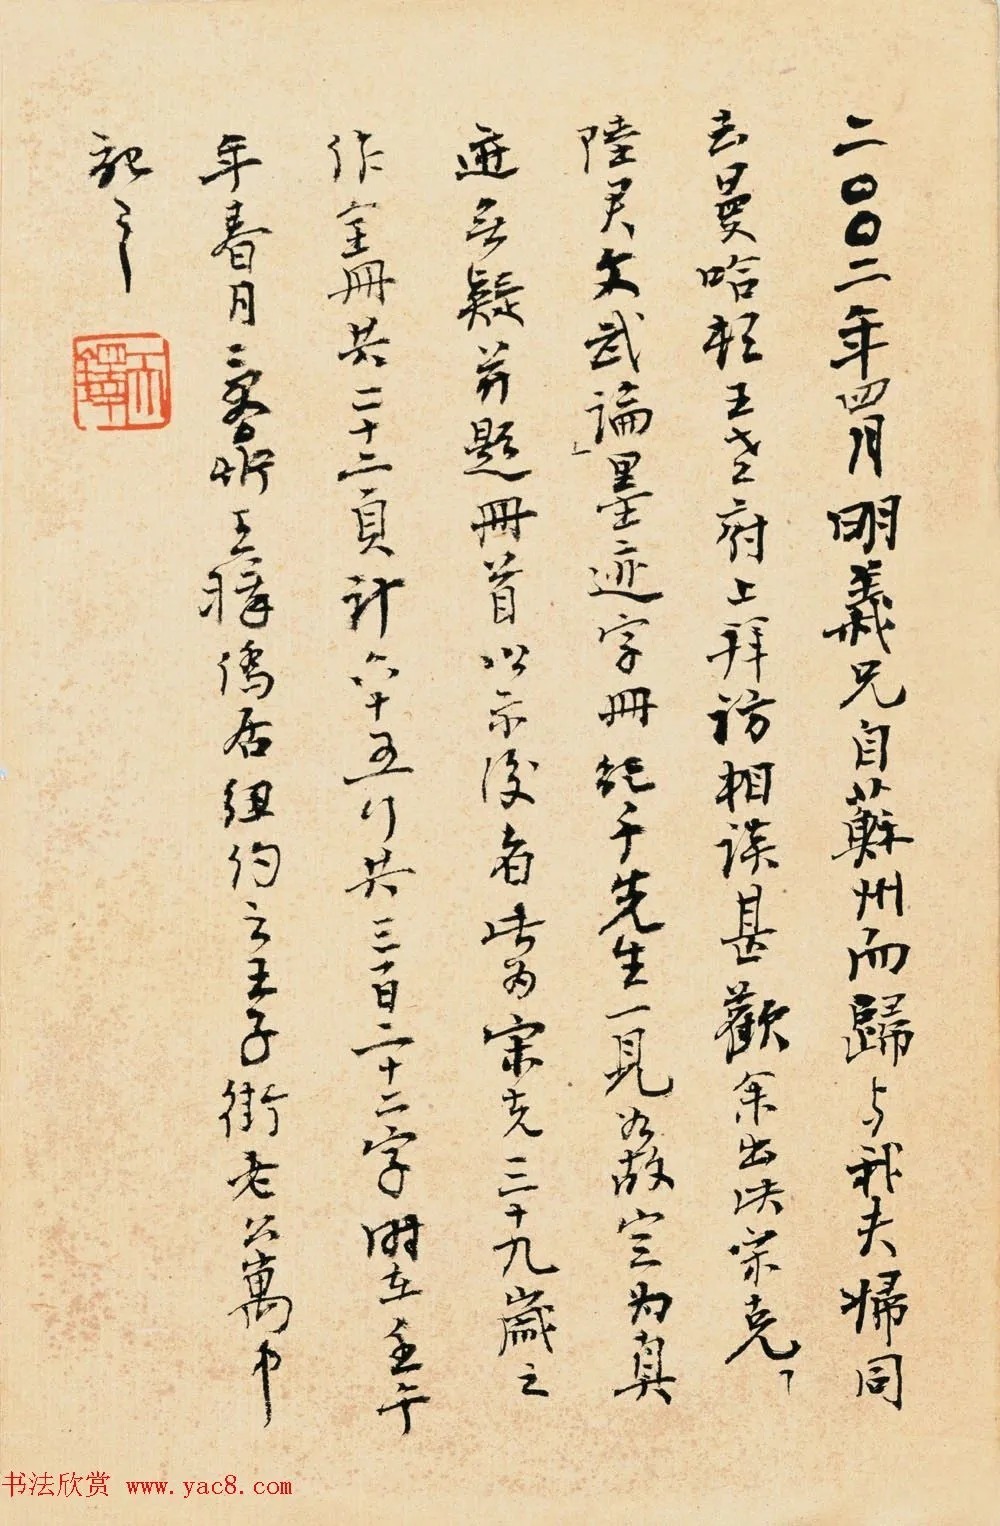 二〇〇二年四月明義兄自蘇州而歸与我夫婦同
去曼哈頓王老府上拜訪相談甚歡余出次宋克「
陸君文武論」墨迹字冊纪千先生一見如故定为真
迹无疑并題冊首以示後者此为宋克三十九歲之
作全冊共二十二頁計六十五行共三百二十二字時在壬午
年春月 王 僑居纽约之王子街老公寓中
記之
鐸
书法欣赏 www.yac8.com